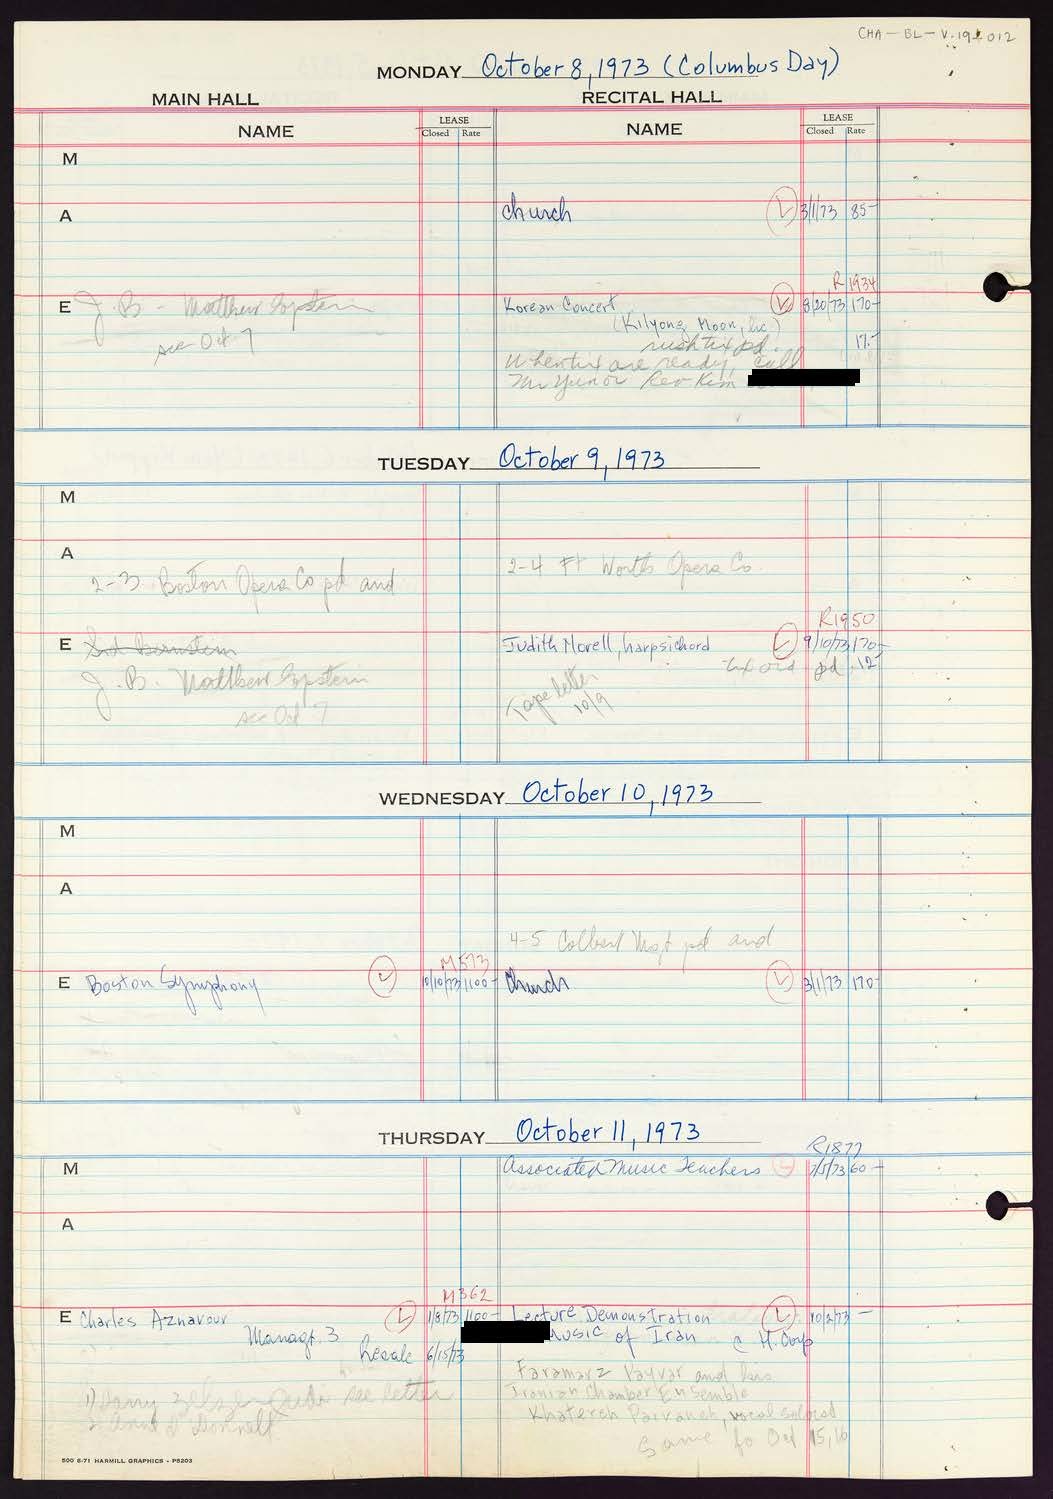 CHA-BL-V.19 012
MONDAY October 8, 1973 (Columbus Day)
MAIN HALL
RECITAL HALL
NAME LEASE Closed Rate NAME LEASE Closed Rate
M
A church L 3/1/73 85-
R 1934
E J. B - Matthew Epstein Korean Concert L 8/20/73 170-
(Kilyong Moon, Inc.)
see Oct 7 rush tix pd. 17.-
When tix are ready, call
Mr Yun or Rev Kim
TUESDAY October 9, 1973
M
A
2-3 Boston Opera Co pd and 2-4 Ft Worth Opera Co.
R1950
E Sid Bernstein Judith Norell, harpsichord L 9/10/73 170-
tix ord pd 12
J. B. Matthew Epstein
see Oct 7 Tape letter
10/9
WEDNESDAY October 10, 1973
M
A
4-5 Colbert Mgt pd and
M573
E Boston Symphony L 10/10/73 1100- Church L 3/1/73 170-
THURSDAY October 11, 1973
R1877
M Associated Music Teachers 7/5/73 60-
A
M362
E Charles Aznavour L 1/8/73 1100- Lecture Demonstration L 10/2/73 -
Managt. 3 Music of Iran c H. Corp
Resale 6/15/73
Faramarz Payvar and his
Iranian Chamber Ensemble
see letter
Khatereh Parvaneh, vocal soloist
Same fo Oct 15, 16
500 6-71 HARMILL GRAPHICS - P5203